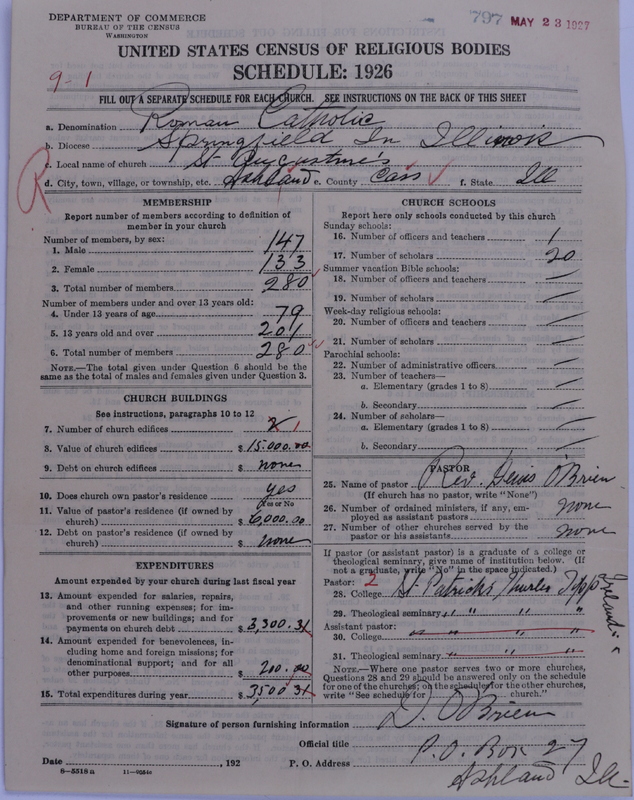 DEPARTMENT OF COMMERCE
BUREAU OF THE CENSUS
WASHINGTON
797 MAY 23 1927
UNITED STATES CENSUS OF RELIGIOUS BODIES
SCHEDULE: 1926
9-1
FILL OUT A SEPARATE SCHEDULE FOR EACH CHURCH. SEE INSTRUCTIONS ON THE BACK OF THIS SHEET
a. Denomination Roman Catholic
b. Diocese Springfield In Illinois
c. Local name of church St Augustines
R
d. City, town, village, or township, etc. Ashland e. County Cass f. State Ill
MEMBERSHIP
Report number of members according to definition of
member in your church
Number of members, by sex:
1. Male 147
2. Female 133
3. Total number of members 280
Number of members under and over 13 years old:
4. Under 13 years of age 79
5. 13 years old and over 201
6. Total number of members 280
NOTE.—The total given under Question 6 should be
same as the total of males and females given under Question 3.
CHURCH BUILDINGS
See instructions, paragraphs 10 to 12
7. Number of church edifices 1
8. Value of church edifices $ 15.000.00
9. Debt on church edifices $ none
10. Does church own pastor's residence yes
(Yes or No)
11. Value of pastor's residence (if owned by
church) $ 6,000.00
12. Debt on pastor's residence (if owned by
church) $ none
EXPENDITURES
Amount expended by your church during last fiscal year
13. Amount expended for salaries, repairs,
and other running expenses; for im-
provements or new buildings; and for
payments on church debt $ 3,300.31
14. Amount expended for benevolences, in-
cluding home and foreign missions; for
denominational support; and for all
other purposes $ 200.00
15. Total expenditures during year $ 3500 31
CHURCH SCHOOLS
Report here only schools conducted by this church
Sunday schools:
16. Number of officers and teachers 1
17. Number of scholars 20
Summer vacation Bible schools:
18. Number of officers and teachers —
19. Number of scholars —
Week-day religious schools:
20. Number of officers and teachers —
21. Number of scholars —
Parochial schools:
22. Number of administrative officers —
23. Number of teachers—
a. Elementary (grades 1 to 8) —
b. Secondary —
24. Number of scholars—
a. Elementary (grades 1 to 8) —
b. Secondary —
PASTOR
25. Name of pastor Rev. O'Brien
(If church has no pastor, write "None")
26. Number of ordained ministers, if any, em-
ployed as assistant pastors none
27. Number of other churches served by the
pastor or his assistants none
If pastor (or assistant pastor) is a graduate of a college or
theological seminary, give name of institution below. (If
not a graduate, write "No" in the space indicated.)
Pastor: 2
28. College St Patricks Thurles Tipp Ireland
29. Theological seminary " " " "
Assistant pastor:
30. College " " "
31. Theological seminary " " "
NOTE.—Where one pastor serves two or more churches,
Questions 28 and 29 should be answered only on the schedule
for one of the churches; on the schedules for the other churches,
write "See schedule for church."
Signature of person furnishing information D. O'Brien
Official title
Date , 192 P. O. Address P.O. Box 27
Ashland Ill.
8-5518a 11-9054c